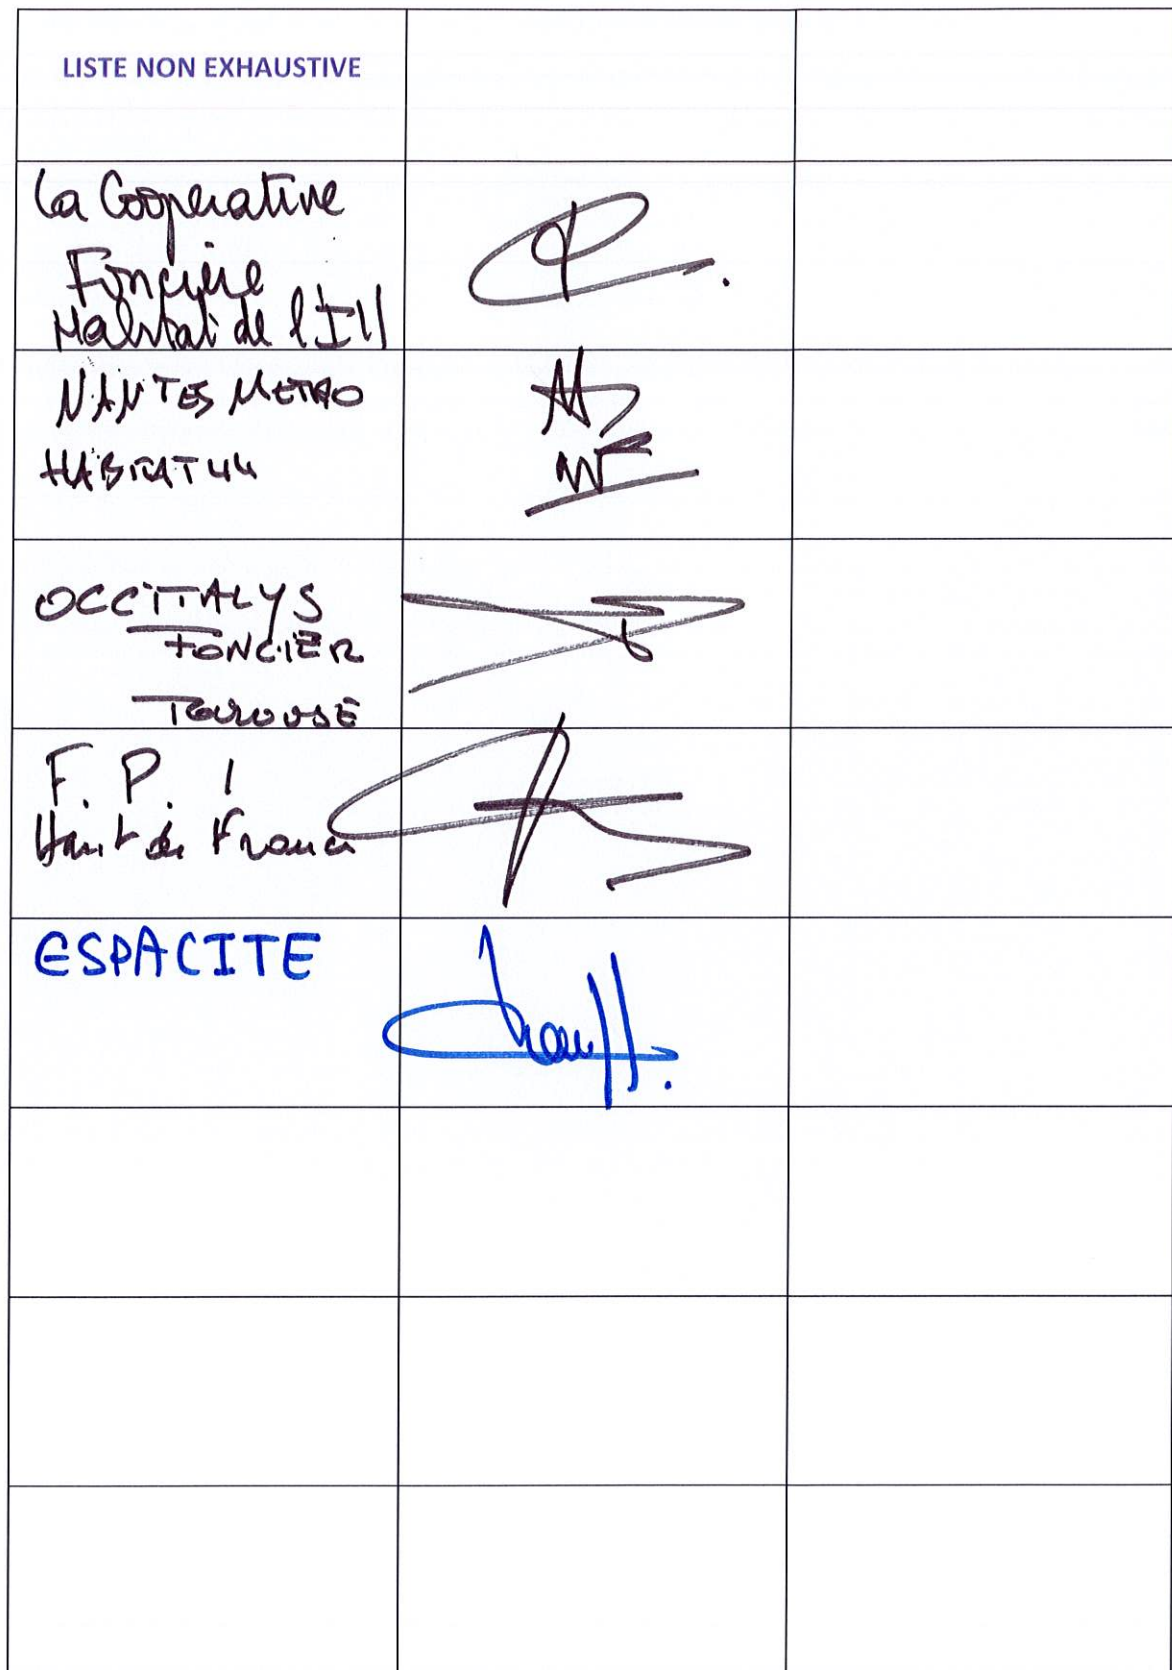 LISTE NON EXHAUSTIVE
La Cooperative
Foncière
Habitat de l'Ill
NANTES METRO
HABITAT 44
OCCITALYS
FONCIER
TOULOUSE
F. P. I
Haut de France
ESPACITE